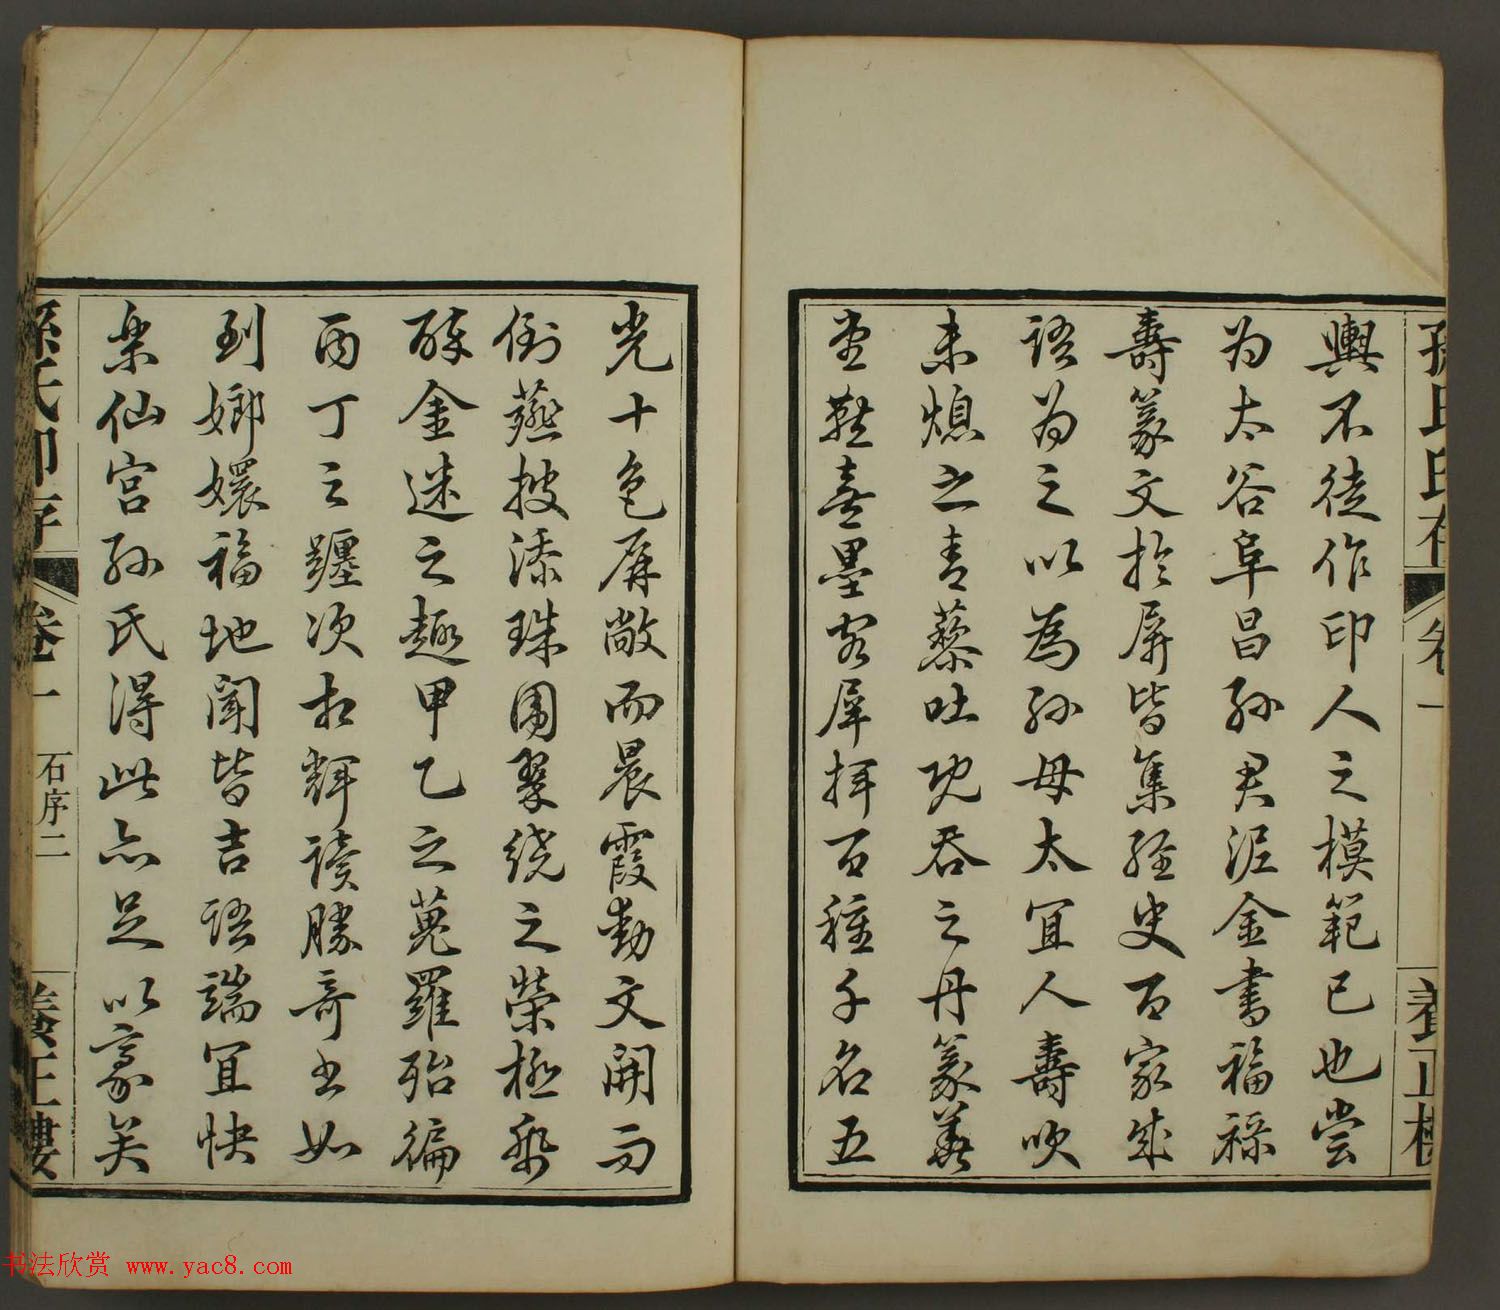 孫氏印存
卷一
養正樓
輿不徒作印人之模範已也嘗
为太谷阜昌孙君泥金書福祿
壽篆文於屏皆集經史百家成
語为之以為孙母太宜人壽吹
未熄之青藜吐吞之丹篆
堂喜墨客犀揮百種千名五
光十色屏敞而晨霞動文開而
倒薤披添珠圍翠绕之榮極
醉金迷之趣甲乙之蒐羅殆徧
丙丁之躔次相輝读勝奇书如
到嫏嬛福地闻皆吉語端宜快
樂仙宫孙氏得此亦足以豪矣
孫氏印存
卷一
石序二
養正樓
书法欣赏 www.yac8.com